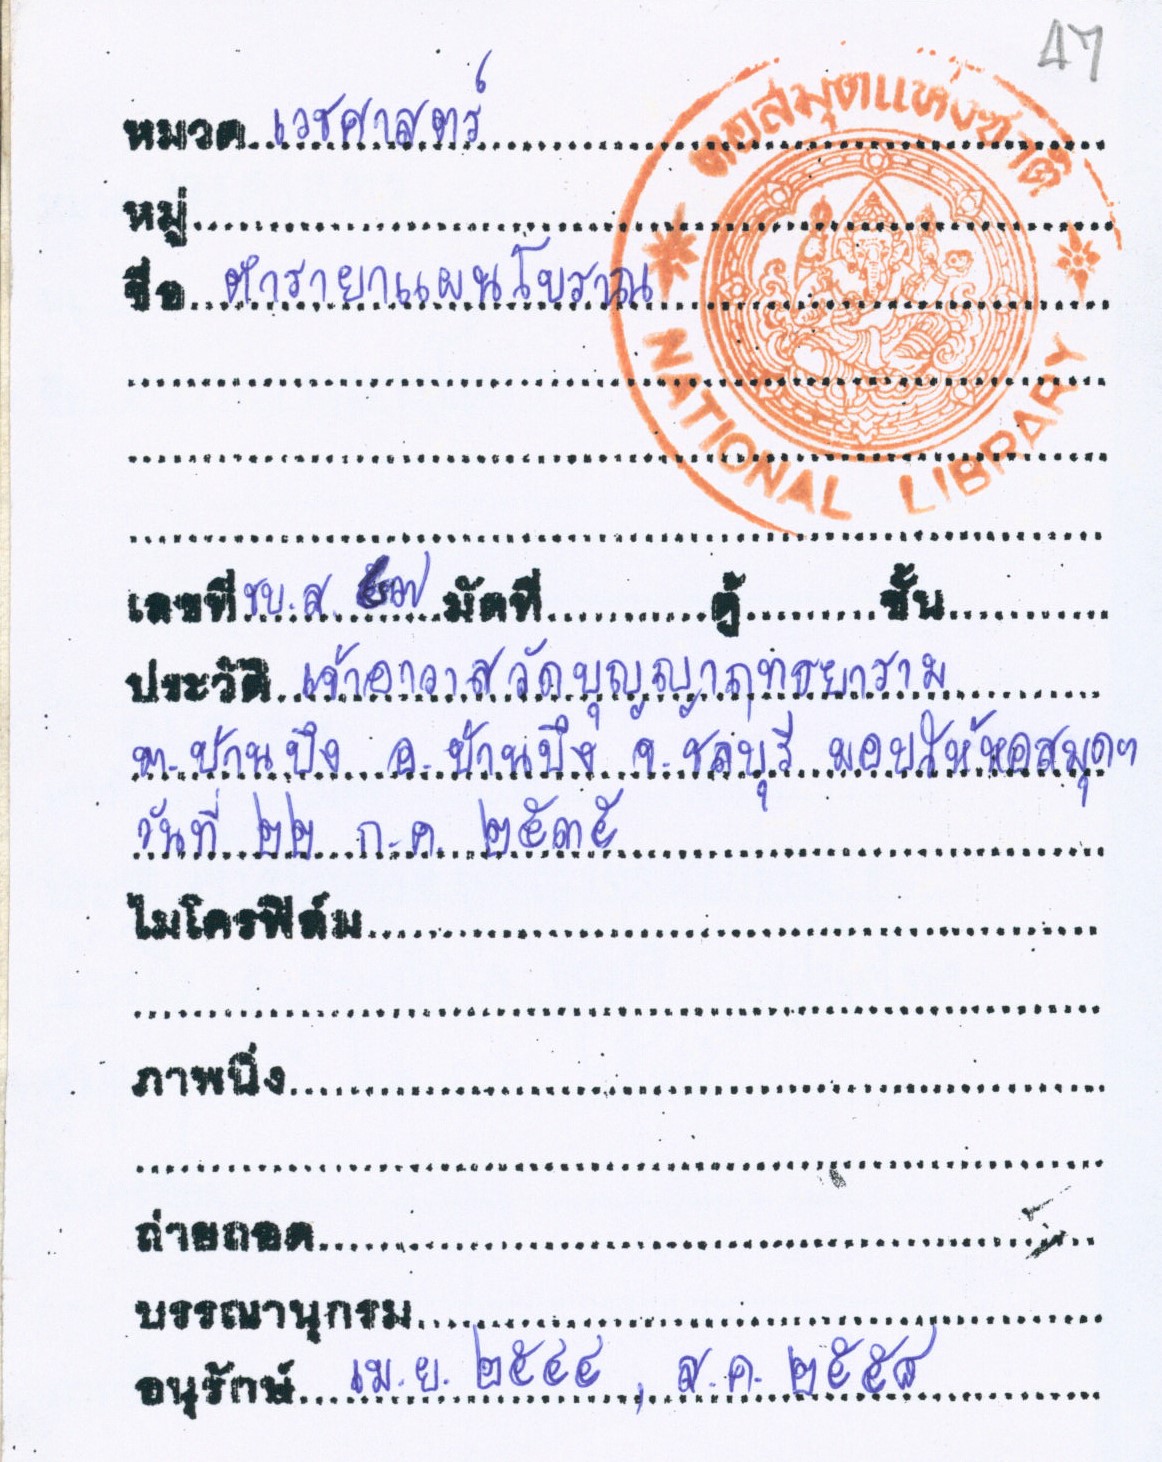 47
หอสมุดแห่งชาติ
NATIONAL LIBRARY
หมวด เวชศาสตร์
หมู่
ชื่อ ตำรายาแผนโบราณ
เลขที่ ชบ.ส. มัดที่ ตู้ ชั้น
ประวัติ เจ้าอาวาสวัดบุญญาฤทธยาราม
ต.บ้านบึง อ.บ้านบึง จ.ชลบุรี มอบให้หอสมุดฯ
วันที่ ๒๒ ก.ค. ๒๕๓๕
ไมโครฟิล์ม
ภาพนิ่ง
ถ่ายถอด
บรรณานุกรม
อนุรักษ์ เม.ย. ๒๕๔๔ , ส.ค. ๒๕๕๘